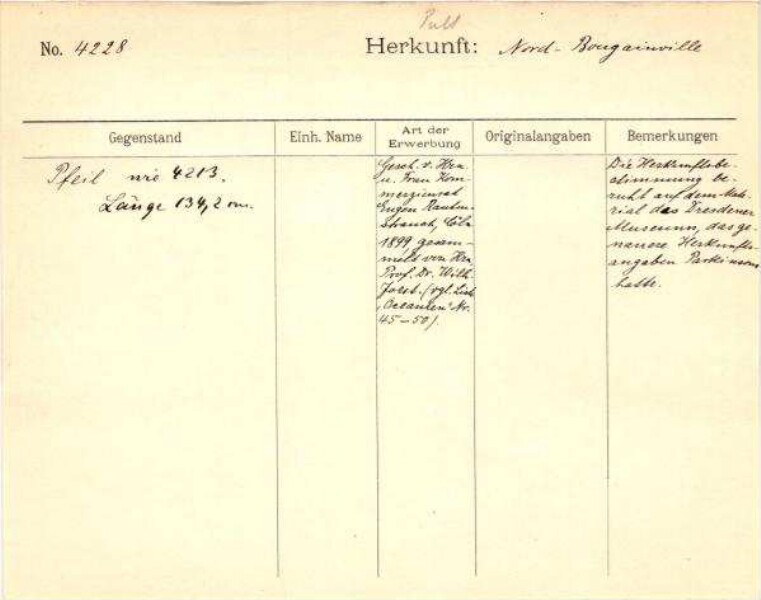 Pult
No. 4228 Herkunft: Nord-Bougainville
Gegenstand Einh. Name Art der Erwerbung Originalangaben Bemerkungen
Pfeil wie 4213.
Länge 134,2 cm.
Gesch. v. Hrn.
u. Frau Kom-
merzienrat
Eugen Rauten-
strauch, Cöln
1899, gesam-
melt von Hrn
Prof. Dr. Wilh.
Joest. (vgl. List.
"Ozeanien" Nr.
45-50).
Die Herkunftsbe-
stimmung be-
ruht auf dem Mate-
rial des Dresdener
Museums, das ge-
nauere Herkunfts-
angaben Parkinsons
hatte.